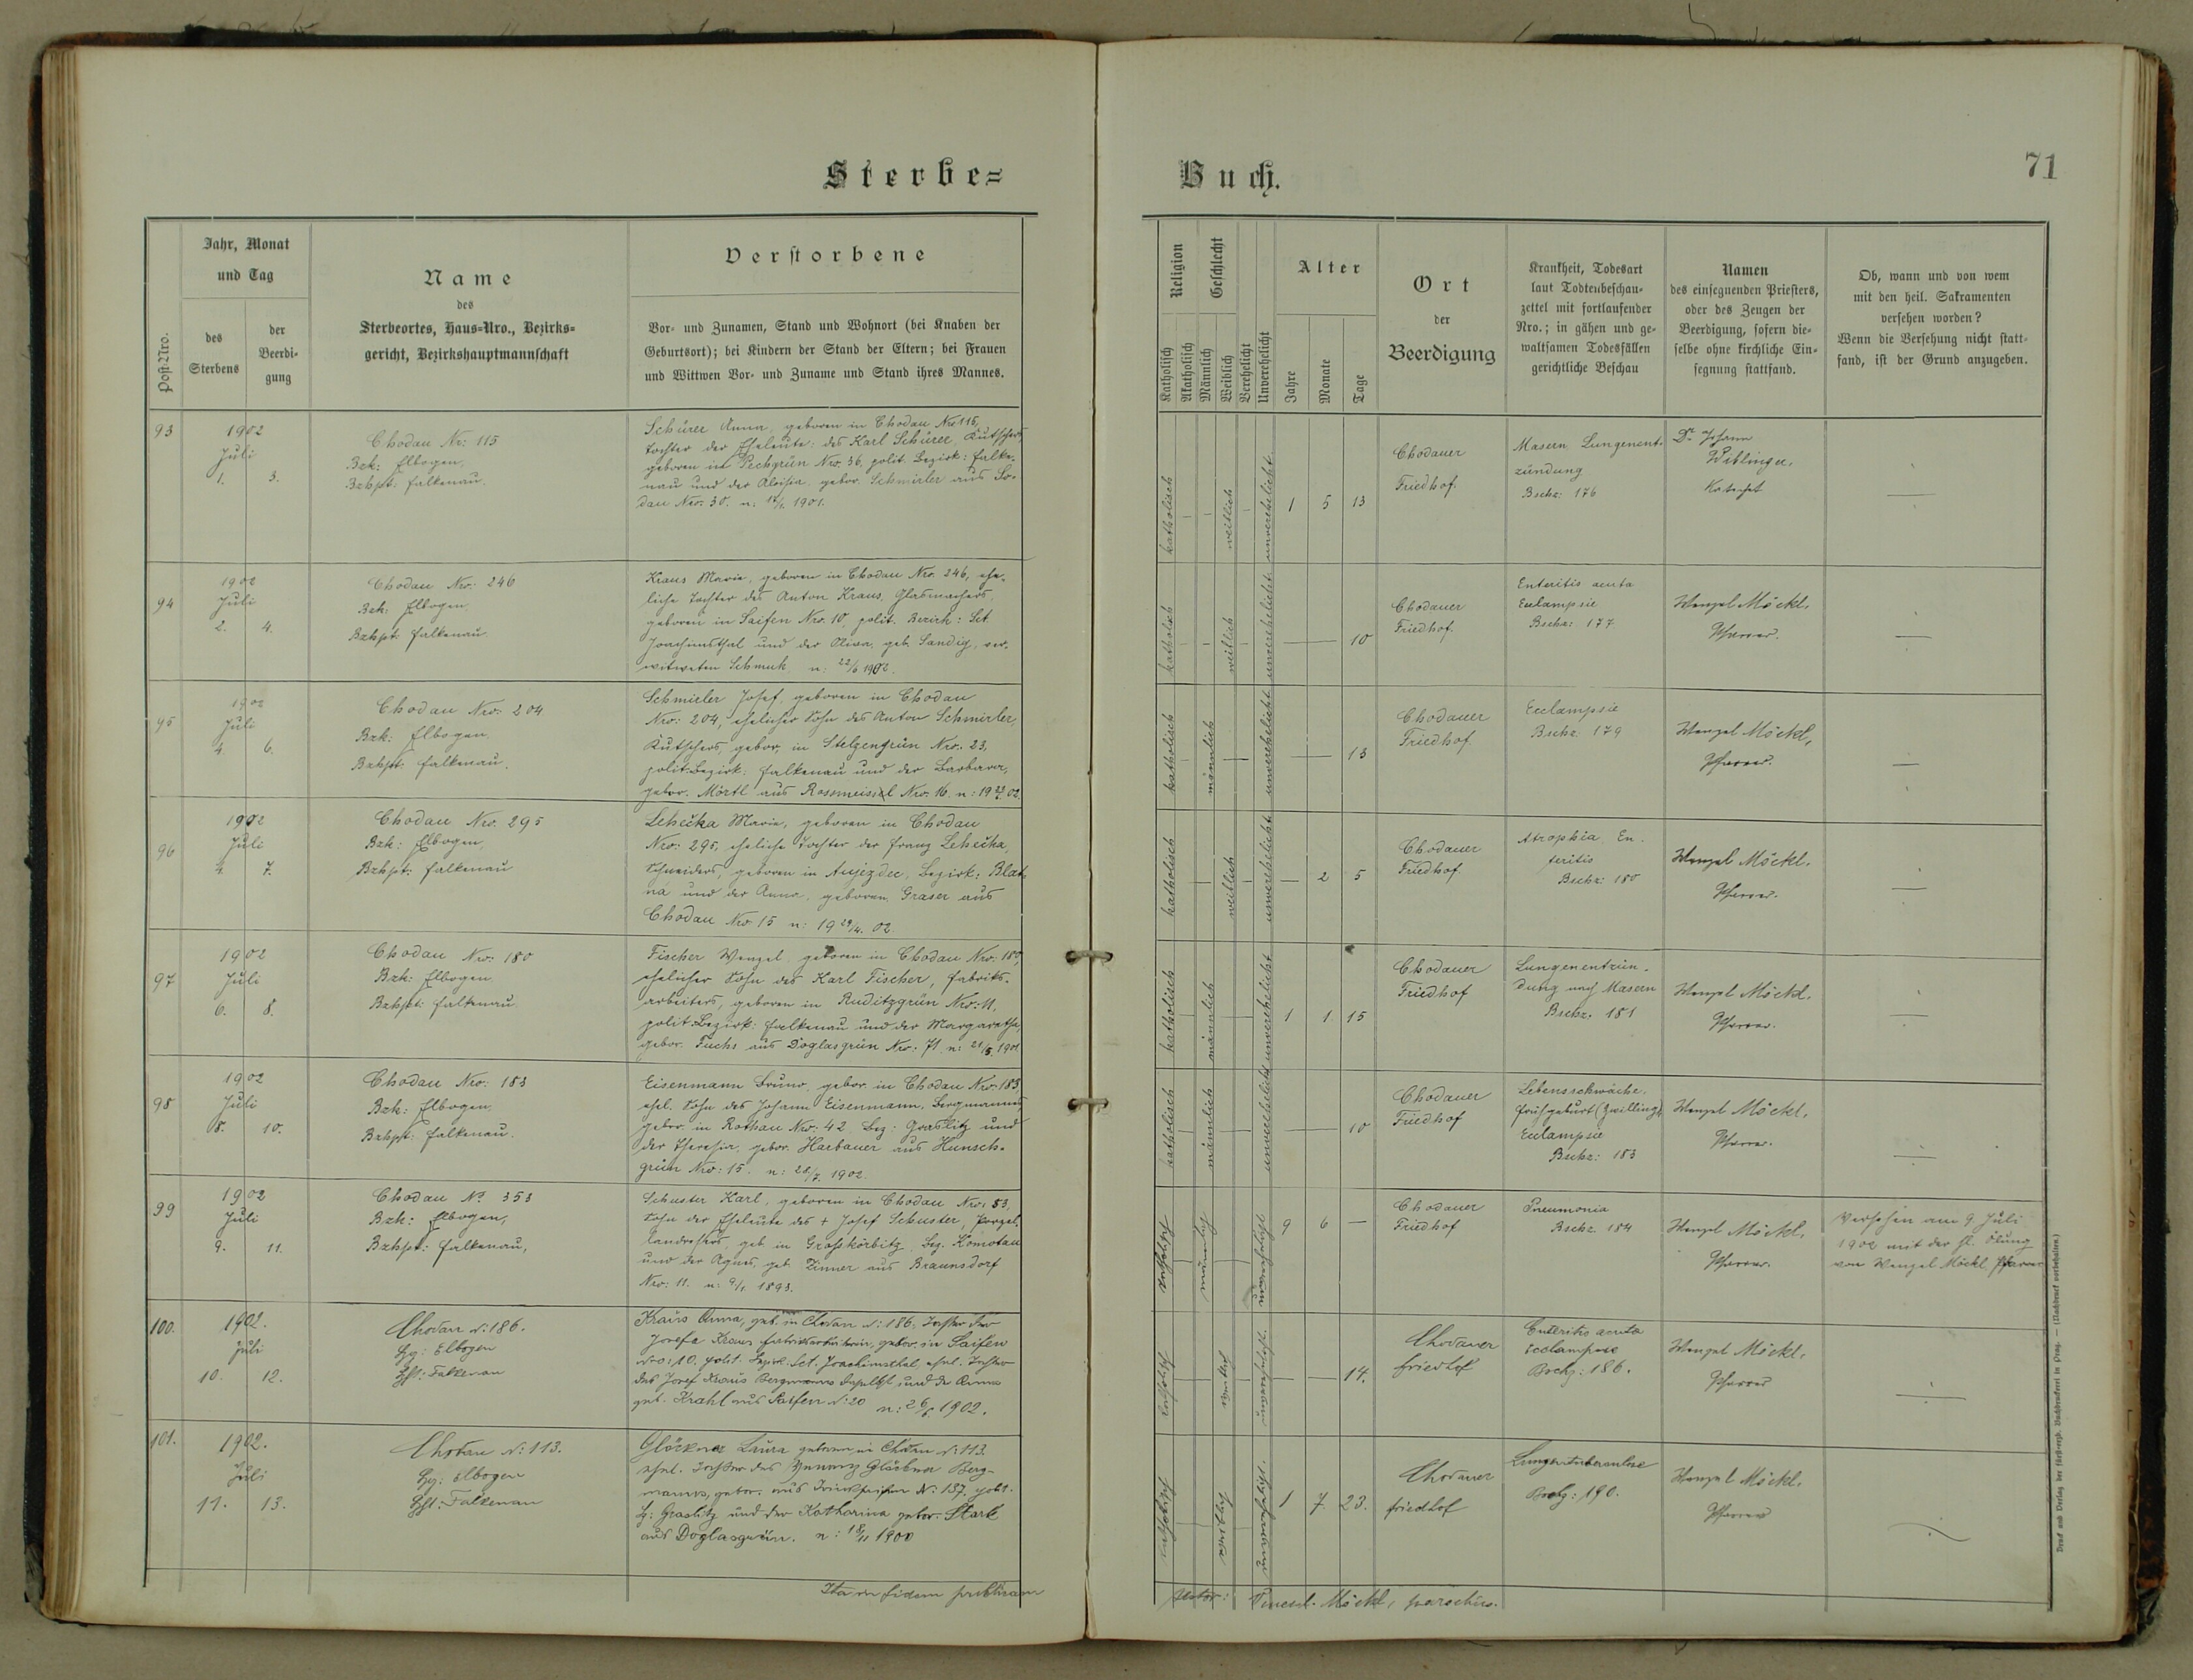 Sterbe=
Buch.
71
Post-Nro.
Jahr, Monat
und Tag
des
Sterbens
der
Beerdi-
gung
Name
des
Sterbeortes, Haus-Nro., Bezirks-
gericht, Bezirkshauptmannschaft
Verstorbene
Vor- und Zunamen, Stand und Wohnort (bei Knaben der
Geburtsort); bei Kindern der Stand der Eltern; bei Frauen
und Wittwen Vor- und Zuname und Stand ihres Mannes.
Religion
Katholisch
Akatholisch
Geschlecht
Männlich
Weiblich
Verehelicht
Unverehelicht
Alter
Jahre
Monate
Tage
Ort
der
Beerdigung
Krankheit, Todesart
laut Todtenbeschau-
zettel mit fortlaufender
Nro.; in gähen und ge-
waltsamen Todesfällen
gerichtliche Beschau
Namen
des einsegnenden Priesters,
oder des Zeugen der
Beerdigung, sofern die-
selbe ohne kirchliche Ein-
segnung stattfand.
Ob, wann und von wem
mit den heil. Sakramenten
versehen worden?
Wenn die Versehung nicht statt-
fand, ist der Grund anzugeben.
93
1902
Juli
1. 3.
Chodau Nr: 115
Bzk: Elbogen,
Bzhpt: Falkenau.
Schürer Anna, geboren in Chodau Nro 115,
Tochter der Eheleute: des Karl Schürer, Kutschers,
geboren in Pechgrün Nro. 36, polit. Bezirk: Falke-
nau und der Aloisia, gebor. Schmirler aus So-
dau Nro: 30. n: 1901.
katholisch
weiblich
unverehelicht
1 5 13
Chodauer
Friedhof.
Masern Lungenent-
zündung
Bschz: 176
Dr. Johann
Wiblinger,
Katechet
94
1902
Juli
2. 4.
Chodau Nro: 246
Bzk: Elbogen,
Bzhpt: Falkenau.
Kraus Marie, geboren in Chodau Nro. 246, ehe-
liche Tochter des Anton Kraus, Glasmachers,
geboren in Saifen Nro. 10, polit. Bezirk: Sct
Joachimsthal und der Olivia, geb. Sandig, ver-
witweten Schmuk n: 22/6 1902.
katholisch
weiblich
unverehelicht
10
Chodauer
Friedhof.
Enteritis acuta
Eclampsie
Bschz: 177
Wenzel Möckl,
Pfarrer.
95
1902
Juli
4. 6.
Chodau Nro: 204
Bzk: Elbogen,
Bzhpt: Falkenau.
Schmirler Josef, geboren in Chodau
Nro: 204, ehelicher Sohn des Anton Schmirler,
Kutschers, gebor, in Stelzengrün Nro: 23,
polit. Bezirk: Falkenau und der Barbara,
gebor. Mörtl aus Rossmeissl Nro. 16. n: 19 02.
katholisch
männlich
unverehelicht
13
Chodauer
Friedhof.
Eclampsie
Bschz: 179
Wenzel Möckl,
Pfarrer.
96
1902
Juli
4. 7.
Chodau Nro. 295
Bzk: Elbogen,
Bzhpt: Falkenau
Lehečka Marie, geboren in Chodau
Nro: 295, eheliche Tochter des Franz Lehečka,
Schneiders, geboren in Aujezdec, Bezirk: Blat-
ná und der Anna, geboren, Graser aus
Chodau Nro 15 n: 19 29/4. 02.
katholisch
weiblich
unverehelicht
2 5
Chodauer
Friedhof
Atrophia En-
teritis
Bschz: 180
Wenzel Möckl,
Pfarrer.
97
1902
Juli
6. 8.
Chodau Nro: 180
Bzk: Elbogen
Bzhpt: Falkenau
Fischer Wenzel, geboren in Chodau Nro: 180,
ehelicher Sohn des Karl Fischer, Fabriks-
arbeiters, geboren in Ruditzgrün Nro: 11,
polit. Bezirk: Falkenau und der Margarethe,
gebor. Fuchs aus Doglasgrün Nro: 71. n: 21/5. 1901
katholisch
männlich
unverehelicht
1 1 15
Chodauer
Friedhof
Lungenentzün-
dung nach Masern
Bschz: 181
Wenzel Möckl,
Pfarrer.
98
1902
Juli
8. 10.
Chodau Nro: 183
Bzk: Elbogen,
Bzhpt: Falkenau.
Eisenmann Bruno, gebor. in Chodau Nro: 183,
ehel. Sohn des Johann Eisenmann, Bergmannes,
gebor. in Rothau Nro: 42 Bez: Graslitz und
der Theresia, gebor. Haebauer aus Hunsch-
grün Nro: 15. n: 28/ 1902.
katholisch
männlich
unverehelicht
10
Chodauer
Friedhof
Lebensschwäche,
Frühgeburt (Zwilling)
Eclampsie
Bschz: 183
Wenzel Möckl,
Pfarrer.
99
1902
Juli
9. 11.
Chodau No 353
Bzk: Elbogen,
Bzhpt: Falkenau,
Schuster Karl, geboren in Chodau Nro: 53,
Sohn der Eheleute des + Josef Schuster, Porzel-
landrehers geb. in Grosskörbitz, Bez. Komotau
und der Agnes, geb. Zinner aus Braunsdorf
Nro: 11. n: 9/1. 1893.
katholisch
männlich
unverehelicht
9 6
Chodauer
Friedhof
Pneumonia
Bschz. 184
Wenzel Möckl,
Pfarrer.
Versehen am 9 Juli
1902 mit der hl. Ölung
von Wenzel Möckl, Pfarrer
100.
1902.
Juli
10. 12.
Chodau N: 186.
Bzg: Elbogen
Bhft: Falkenau
Kraus Anna, geb. in Chodau N: 186. Tochter der
Josefa Kraus Fabriksarbeiterin, gebor. in Saifen
Nro: 10. polit. Bezirk: Sct. Joachimsthal, ehel. Tochter
des Josef Kraus Bergmanns daselbst und der Anna
geb. Krahl aus Saifen N: 20 n: 26/6. 1902.
katholisch
weiblich
unverehelicht.
14.
Chodauer
Friedhof
Enteritis acuta
Ecclampsie
Bschg: 186.
Wenzel Möckl,
Pfarrer
101.
1902.
Juli
11. 13.
Chodau N: 113.
Bzg: Elbogen
Bhft: Falkenau
Glöckner Laura geboren in Chodau N: 113.
ehel. Tochter des Glöckner Berg-
manns, gebor. aus No: 137. polit.
Bz: Graslitz und der Katharina gebor. Stark
aus Doglasgrün. n: 18/11 1900
katholisch
weiblich
unverehelicht.
1 7. 23.
Chodauer
Friedhof
Lungentuberculose
Bschg: 190.
Wenzel Möckl,
Pfarrer
Ita in fidem publicam
testor: Vincesl. Möckl, parochus.
Druck und Verlag der fürst-erzb. Buchdruckerei in Prag. — (Nachdruck vorbehalten.)